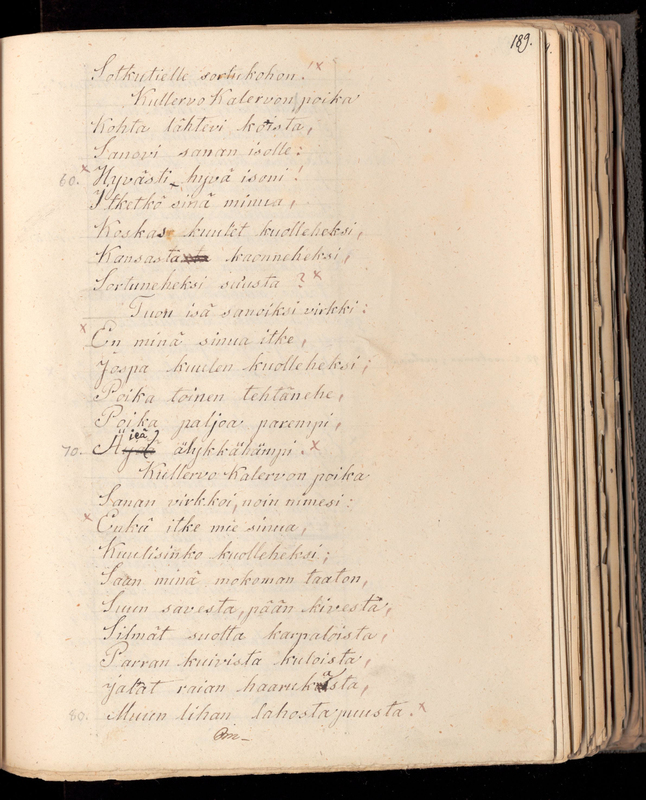 189.
Sotkutielle sortukohon!
Kullervo Kalervon poika
Kohta lähtevi koista,
Sanovi sanan isolle:
60. Hyvästi, hyvä isoni!
Itketkö sinä minua,
Koskas kuulet kuolleheksi,
Kansasta kaonneheksi,
Sortuneheksi su'usta?
Tuon isä sanoiksi virkki:
En minä sinua itke,
Jospa kuulen kuolleheksi;
Poika toinen tehtänehe,
Poika paljoa parempi,
70. Äijeä älykkähämpi.
Kullervo Kalervon poika
Sanan virkkoi, noin nimesi:
Enkä itke mie sinua,
Kuulisinko kuolleheksi;
Saan minä mokoman taaton,
Suun savesta, pään kivestä,
Silmät suolta karpaloista,
Parran kuivista kuloista,
Jalat raian haarukasta,
80. Muun lihan lahosta puusta.